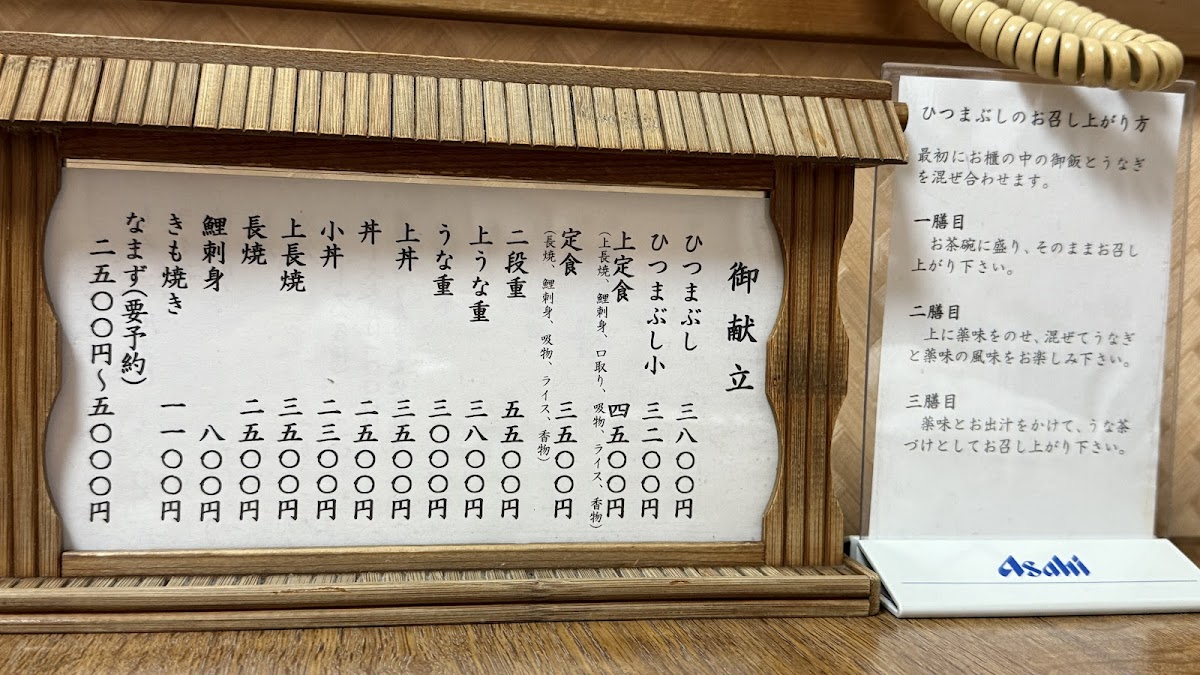 御献立
ひつまぶし 三八〇〇円
ひつまぶし小 三二〇〇円
上定食 四五〇〇円
(上長焼、鯉刺身、口取り、吸物、ライス、香物)
定食 三五〇〇円
(長焼、鯉刺身、吸物、ライス、香物)
二段重 五五〇〇円
上うな重 三八〇〇円
うな重 三〇〇〇円
上丼 三五〇〇円
丼 二五〇〇円
小丼 二三〇〇円
上長焼 三五〇〇円
長焼 二五〇〇円
鯉刺身 八〇〇円
きも焼き 一一〇〇円
なまず(要予約)
二五〇〇円～五〇〇〇円
ひつまぶしのお召し上がり方
最初にお櫃の中の御飯とうなぎ
を混ぜ合わせます。
一膳目
お茶碗に盛り、そのままお召し
上がり下さい。
二膳目
上に薬味をのせ、混ぜてうなぎ
と薬味の風味をお楽しみ下さい。
三膳目
薬味とお出汁をかけて、うな茶
づけとしてお召し上がり下さい。
Asahi